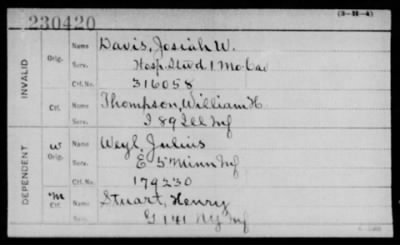 230420
(3-H-4)
INVALID
Orig.
Name Davis, Josiah W.
Serv. Hosp. Stwd 1 Mo. Cav
Ctf. No. 316058
Ctf.
Name Thompson, William H.
Serv. I 89 Ill Inf
DEPENDENT
W Orig.
Name Weyl, Julius
Serv. E 5 Minn Inf
Ctf. No. 179230
M Ctf.
Name Stuart, Henry
Serv. G 141 Ny Inf